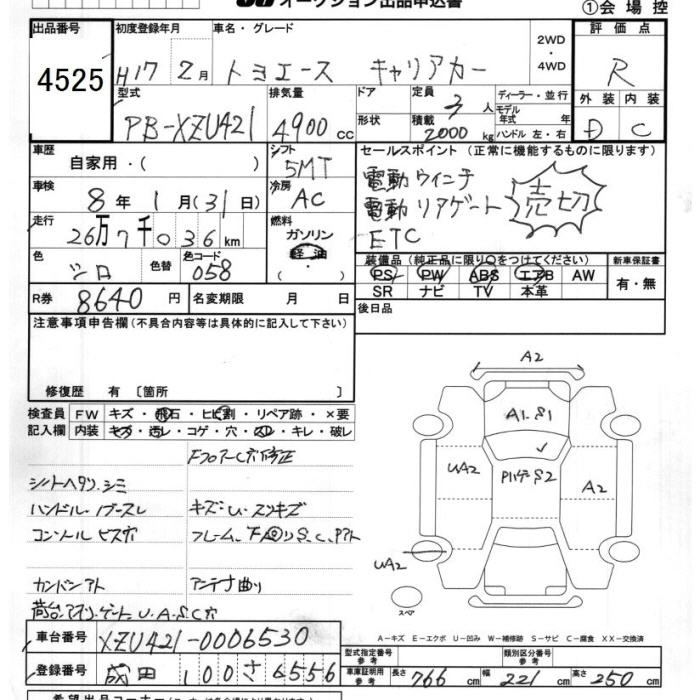 オークション出品申込書
①会場控
出品番号 初度登録年月 車名・グレード 2WD ・ 4WD 評価点
4525 H17 2月 トヨエース キャリアカー R
型式 排気量 ドア 定員 3人 ディーラー・並行 外装 内装
モデル年式 年
PB-XZU421 4900cc 形状 積載 2000kg ハンドル 左・右 D C
車歴 自家用・( ) シフト 5MT セールスポイント (正常に機能するものに限ります)
車検 8年 1月(31日) 冷房 AC 電動ウィンチ 売切
走行 26万7千036km 燃料 ガソリン 軽油 電動リアゲート
ETC
色 シロ 色替 色コード 058 装備品(純正品に限り○をつけてください) 新車保証書
PS PW ABS エアB AW 有・無
SR ナビ TV 本革
R券 8640円 名変期限 月 日 後日品
注意事項申告欄(不具合内容等は具体的に記入して下さい)
修復歴 有 〔箇所 〕
検査員 FW キズ・飛石・ヒビ割・リペア跡・×要
記入欄 内装 キズ・汚レ・コゲ・穴・スレ・キレ・破レ
FフロアーC穴修正
シートヘタリ、シミ
ハンドル・ノブスレ キズ・U・スリキズ
コンソールビス穴 フレーム、下廻りS、C、Pアト
カンバンアト アンテナ曲り
荷台アオリ、ゲート、U・A・S・C穴
車台番号 XZU421-0006530
登録番号 成田 100 さ 6556
A2
A1.S1
UA2
PハゲS2
A2
UA2
スペア
A-キズ E-エクボ U-凹み W-補修跡 S-サビ C-腐食 XX-交換済
型式指定番号 参考 類別区分番号 参考
車庫証明用 参考 長さ 766cm 幅 221cm 高さ 250cm